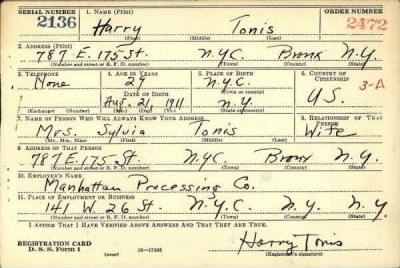 SERIAL NUMBER 1. NAME (Print) ORDER NUMBER
2136 Harry Tonis 2472
(First) (Middle) (Last)
2. ADDRESS (Print)
787 E. 175 St. N.Y.C. Bronx N.Y.
(Number and street or R. F. D. number) (Town) (County) (State)
3. TELEPHONE 4. AGE IN YEARS 5. PLACE OF BIRTH 6. COUNTRY OF CITIZENSHIP
None 29 N.Y.C. 3-A
DATE OF BIRTH (Town or county)
Aug. 21, 1911 N.Y. U.S.
(Exchange) (Number) (Mo.) (Day) (Yr.) (State or country)
7. NAME OF PERSON WHO WILL ALWAYS KNOW YOUR ADDRESS 8. RELATIONSHIP OF THAT PERSON
Mrs. Sylvia Tonis Wife
(Mr., Mrs., Miss) (First) (Middle) (Last)
9. ADDRESS OF THAT PERSON
787 E. 175 St. N.Y.C. Bronx N.Y.
(Number and street or R. F. D. number) (Town) (County) (State)
10. EMPLOYER'S NAME
Manhattan Processing Co.
11. PLACE OF EMPLOYMENT OR BUSINESS
141 W. 26 St. N.Y.C. N.Y. N.Y.
(Number and street or R. F. D. number) (Town) (County) (State)
I AFFIRM THAT I HAVE VERIFIED ABOVE ANSWERS AND THAT THEY ARE TRUE.
REGISTRATION CARD
D. S. S. Form 1 (over) 16—17105 Harry Tonis
(Registrant's signature)